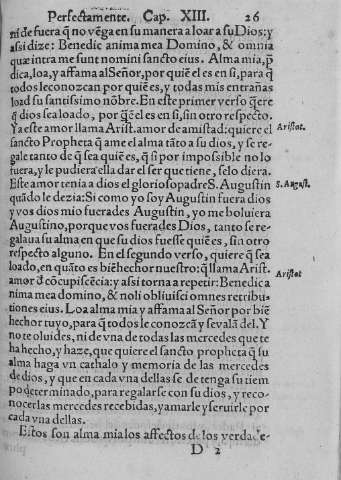 Perfectamente. Cap. XIII. 26
ni de fuera q̃ no vẽga en su manera a loar a su Dios: y
assi dize: Benedic anima mea Domino, & omnia
quæ intra me sunt nomini sancto eius. Alma mia, p̃
dica, loa, y affama al Señor, por quiẽ el es en si, para q̃
todos le conozcan por quiẽ es, y todas mis entrañas
load su santissimo nõbre. En este primer verso q̃ere
q̃ dios sea loado, por q̃ẽ el es en si, sin otro respecto.
Y a este amor llama Arist. amor de amistad: quiere el
sancto Propheta q̃ ame el alma tãto a su dios, y se re-
gale tanto de q̃ sea quiẽ es, q̃ si por impossible no lo
fuera, y le pudiera ella dar el ser que tiene, selo diera.
Este amor tenia a dios el glorioso padre S. Augustin
quãdo le dezia: Si como yo soy Augustin fuera dios
y vos dios mio fuerades Augustin, yo me boluiera
Augustino, porque vos fuerades Dios, tanto se re-
galaua su alma en que su dios fuesse quiẽ es, sin otro
respecto alguno. En el segundo verso, quiere q̃ sea
loado, en quãto es biẽhechor nuestro: q̃ llama Arist.
amor đ cõcupiscẽcia: y assi torna a repetir: Benedic a
nima mea domino, & noli obliuisci omnes retribu-
tiones eius. Loa alma mia y affama al Señor por biẽ
hechor tuyo, para q̃ todos le conozcã y se vala del. Y
no te oluides, ni de vna de todas las mercedes que te
ha hecho, y haze, que quiere el sancto propheta q̃ su
alma haga vn cathalo y memoria de las mercedes
de dios, y que en cada vna dellas se detenga su tiem
po determinado, para regalarse con su dios, y reco-
nocer las mercedes recebidas, y amarle y seruirle por
cada vna dellas.
Estos son alma mia los affectos de los verdade-
D 2
Aristot.
S. August.
Aristot